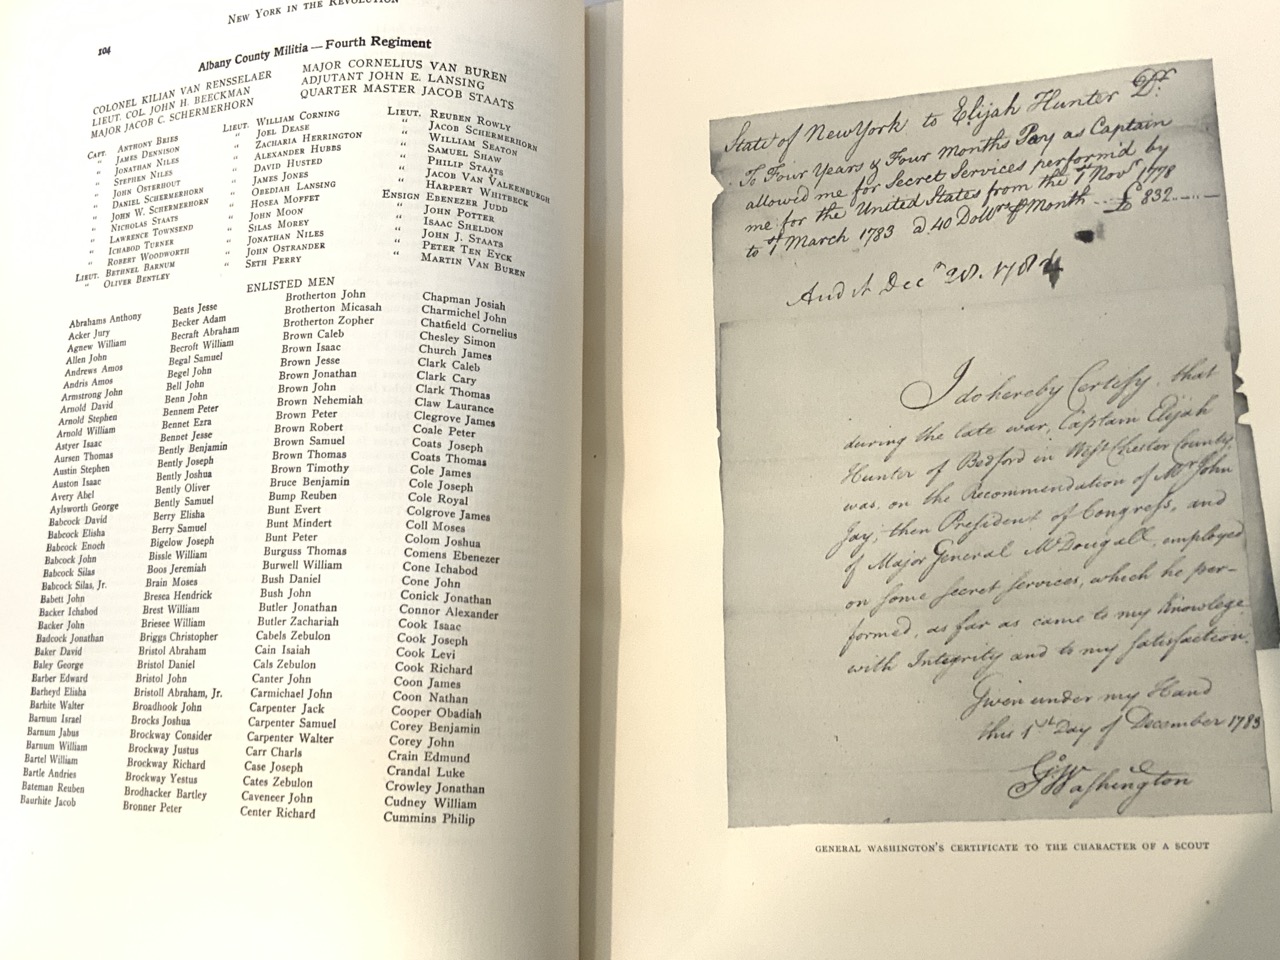 New York in the Revolution
104
Albany County Militia — Fourth Regiment
COLONEL KILIAN VAN RENSSELAER
LIEUT. COL. JOHN H. BEECKMAN
MAJOR JACOB C. SCHERMERHORN
MAJOR CORNELIUS VAN BUREN
ADJUTANT JOHN E. LANSING
QUARTER MASTER JACOB STAATS
Capt. Anthony Bries
" James Dennison
" Jonathan Niles
" Stephen Niles
" John Osterhout
" Daniel Schermerhorn
" John W. Schermerhorn
" Nicholas Staats
" Lawrence Townsend
" Ichabod Turner
" Robert Woodworth
Lieut. Bethnel Barnum
" Oliver Bentley
Lieut. William Corning
" Joel Dease
" Zacharia Herrington
" Alexander Hubbs
" David Husted
" James Jones
" Obediah Lansing
" Hosea Moffet
" John Moon
" Silas Morey
" Jonathan Niles
" John Ostrander
" Seth Perry
Lieut. Reuben Rowly
" Jacob Schermerhorn
" William Seaton
" Samuel Shaw
" Philip Staats
" Jacob Van Valkenburgh
" Harpert Whitbeck
Ensign Ebenezer Judd
" John Potter
" Isaac Sheldon
" John J. Staats
" Peter Ten Eyck
" Martin Van Buren
ENLISTED MEN
Abrahams Anthony
Acker Jury
Agnew William
Allen John
Andrews Amos
Andris Amos
Armstrong John
Arnold David
Arnold Stephen
Arnold William
Astyer Isaac
Aursen Thomas
Austin Stephen
Auston Isaac
Avery Abel
Aylsworth George
Babcock David
Babcock Elisha
Babcock Enoch
Babcock John
Babcock Silas
Babcock Silas, Jr.
Babett John
Backer Ichabod
Backer John
Badcock Jonathan
Baker David
Baley George
Barber Edward
Barheyd Elisha
Barhite Walter
Barnum Israel
Barnum Jabus
Barnum William
Bartel William
Bartle Andries
Bateman Reuben
Baurhite Jacob
Beats Jesse
Becker Adam
Becraft Abraham
Becroft William
Begal Samuel
Begel John
Bell John
Benn John
Bennem Peter
Bennet Ezra
Bennet Jesse
Bently Benjamin
Bently Joseph
Bently Joshua
Bently Oliver
Bently Samuel
Berry Elisha
Berry Samuel
Bigelow Joseph
Bissle William
Boos Jeremiah
Brain Moses
Bresea Hendrick
Brest William
Briesee William
Briggs Christopher
Bristol Abraham
Bristol Daniel
Bristol John
Bristoll Abraham, Jr.
Broadhook John
Brocks Joshua
Brockway Consider
Brockway Justus
Brockway Richard
Brockway Yestus
Brodhacker Bartley
Bronner Peter
Brotherton John
Brotherton Micasah
Brotherton Zopher
Brown Caleb
Brown Isaac
Brown Jesse
Brown Jonathan
Brown John
Brown Nehemiah
Brown Peter
Brown Robert
Brown Samuel
Brown Thomas
Brown Timothy
Bruce Benjamin
Bump Reuben
Bunt Evert
Bunt Mindert
Bunt Peter
Burguss Thomas
Burwell William
Bush Daniel
Bush John
Butler Jonathan
Butler Zachariah
Cabels Zebulon
Cain Isaiah
Cals Zebulon
Canter John
Carmichael John
Carpenter Jack
Carpenter Samuel
Carpenter Walter
Carr Charls
Case Joseph
Cates Zebulon
Caveneer John
Center Richard
Chapman Josiah
Charmichel John
Chatfield Cornelius
Chesley Simon
Church James
Clark Caleb
Clark Cary
Clark Thomas
Claw Laurance
Clegrove James
Coale Peter
Coats Joseph
Coats Thomas
Cole James
Cole Joseph
Cole Royal
Colgrove James
Coll Moses
Colom Joshua
Comens Ebenezer
Cone Ichabod
Cone John
Conick Jonathan
Connor Alexander
Cook Isaac
Cook Joseph
Cook Levi
Cook Richard
Coon James
Coon Nathan
Cooper Obadiah
Corey Benjamin
Corey John
Crain Edmund
Crandal Luke
Crowley Jonathan
Cudney William
Cummins Philip
State of New York to Elijah Hunter Dr.
To Four Years & Four Months Pay as Captain
allowed me for Secret Services perform'd by
me for the United States from the 1st Novr 1778
to 1st March 1783 @ 40 Dollrs Month £ 832
Audit Decr 28. 1784
I do hereby Certify, that
during the late war, Captain Elijah
Hunter of Bedford in West Chester County,
was, on the Recommendation of Mr John
Jay, then President of Congress, and
of Major General McDougall, employed
on some secret services, which he per-
formed, as far as came to my knowlege
with Integrity and to my satisfaction.
Given under my Hand
this 1st Day of December 1783
Go Washington
GENERAL WASHINGTON'S CERTIFICATE TO THE CHARACTER OF A SCOUT